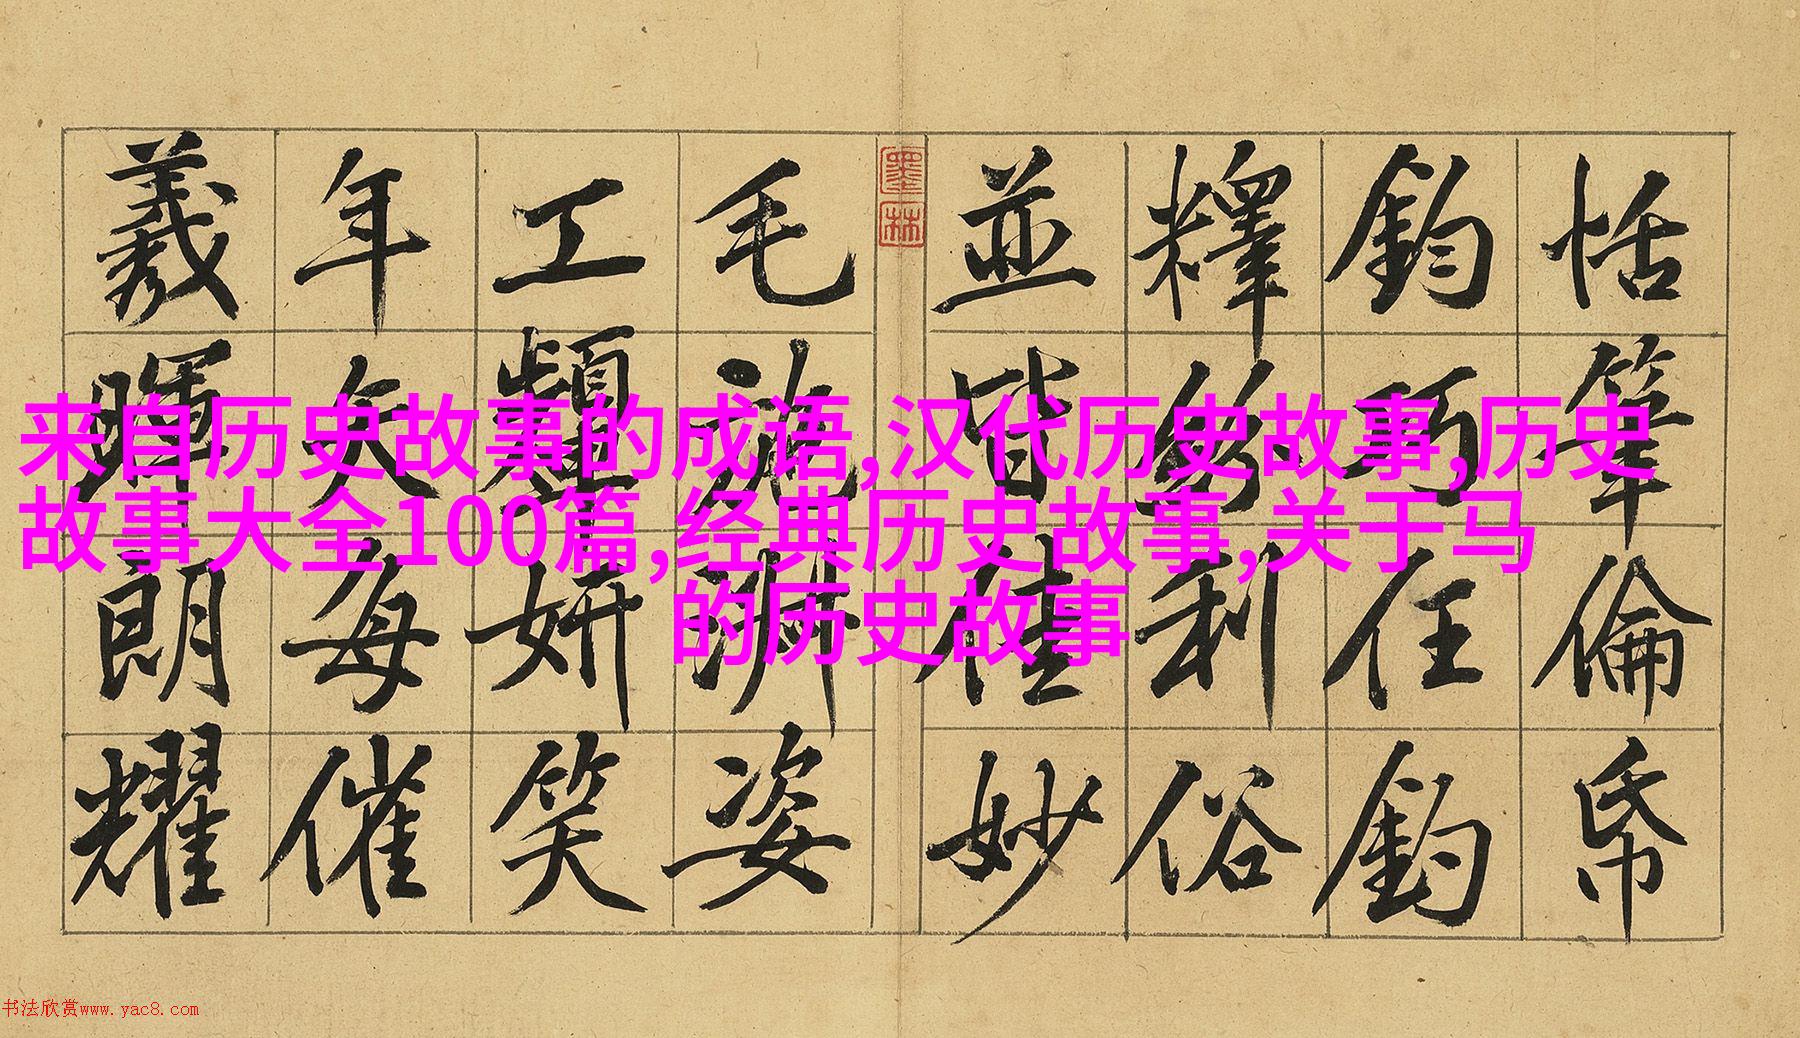 恬筆倫帋
鈞巧任鈞
釋紛利俗
並皆佳妙
毛施淑姿
工顰妍笑
年矢每催
羲暉朗耀
墨林
来自历史故事的成语,汉代历史故事,历史
故事大全100篇,经典历史故事,关于马
的历史故事
书法欣赏www.yac8.com